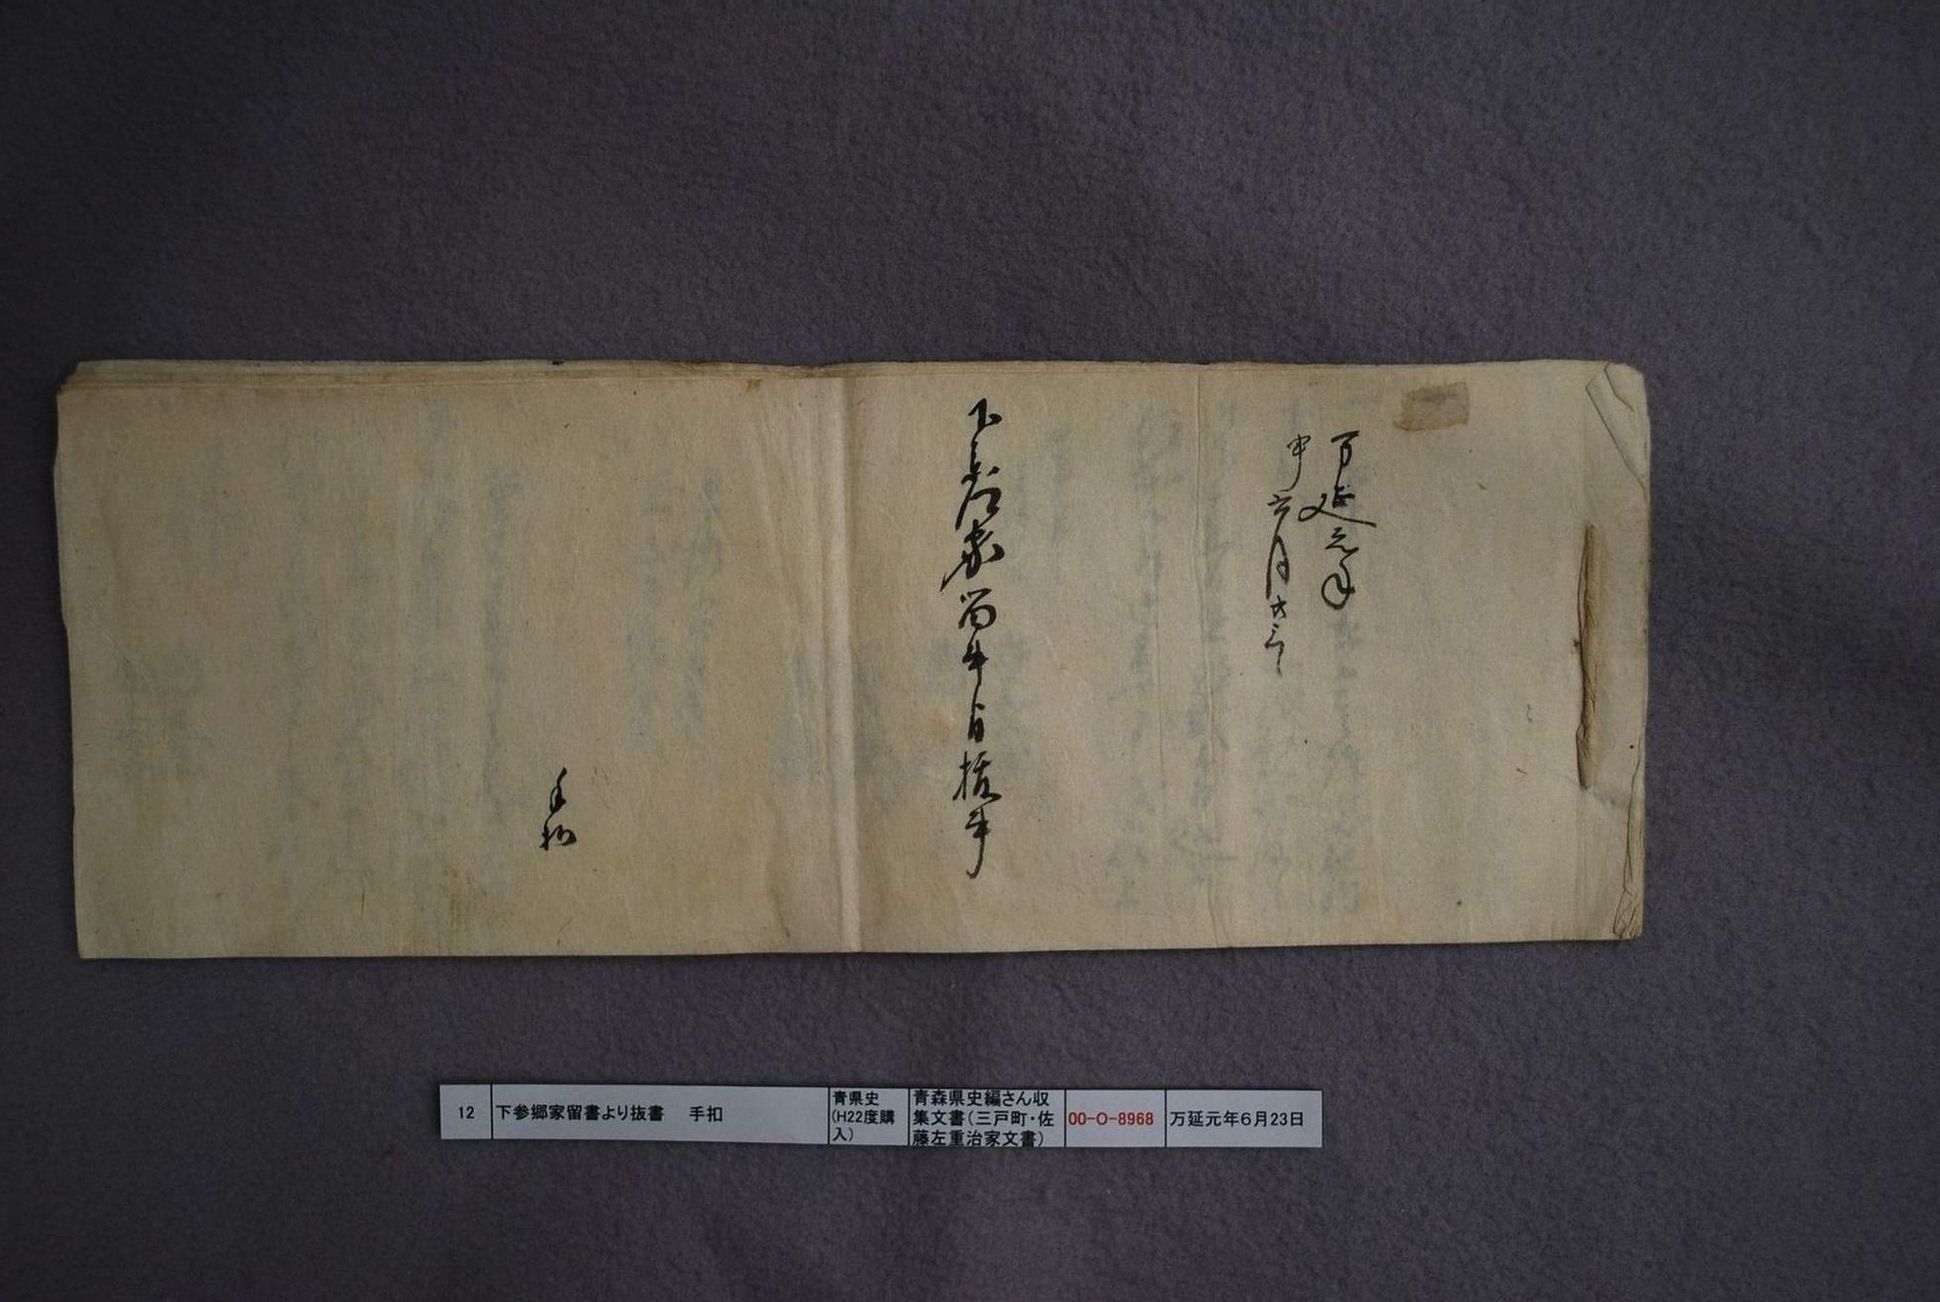 万延元年
申六月廿三日
下参郷家留書ゟ抜書
手扣
12
下参郷家留書より抜書　手扣
青県史
(H22度購
入)
青森県史編さん収
集文書(三戸町・佐
藤左重治家文書)
00-O-8968
万延元年６月23日